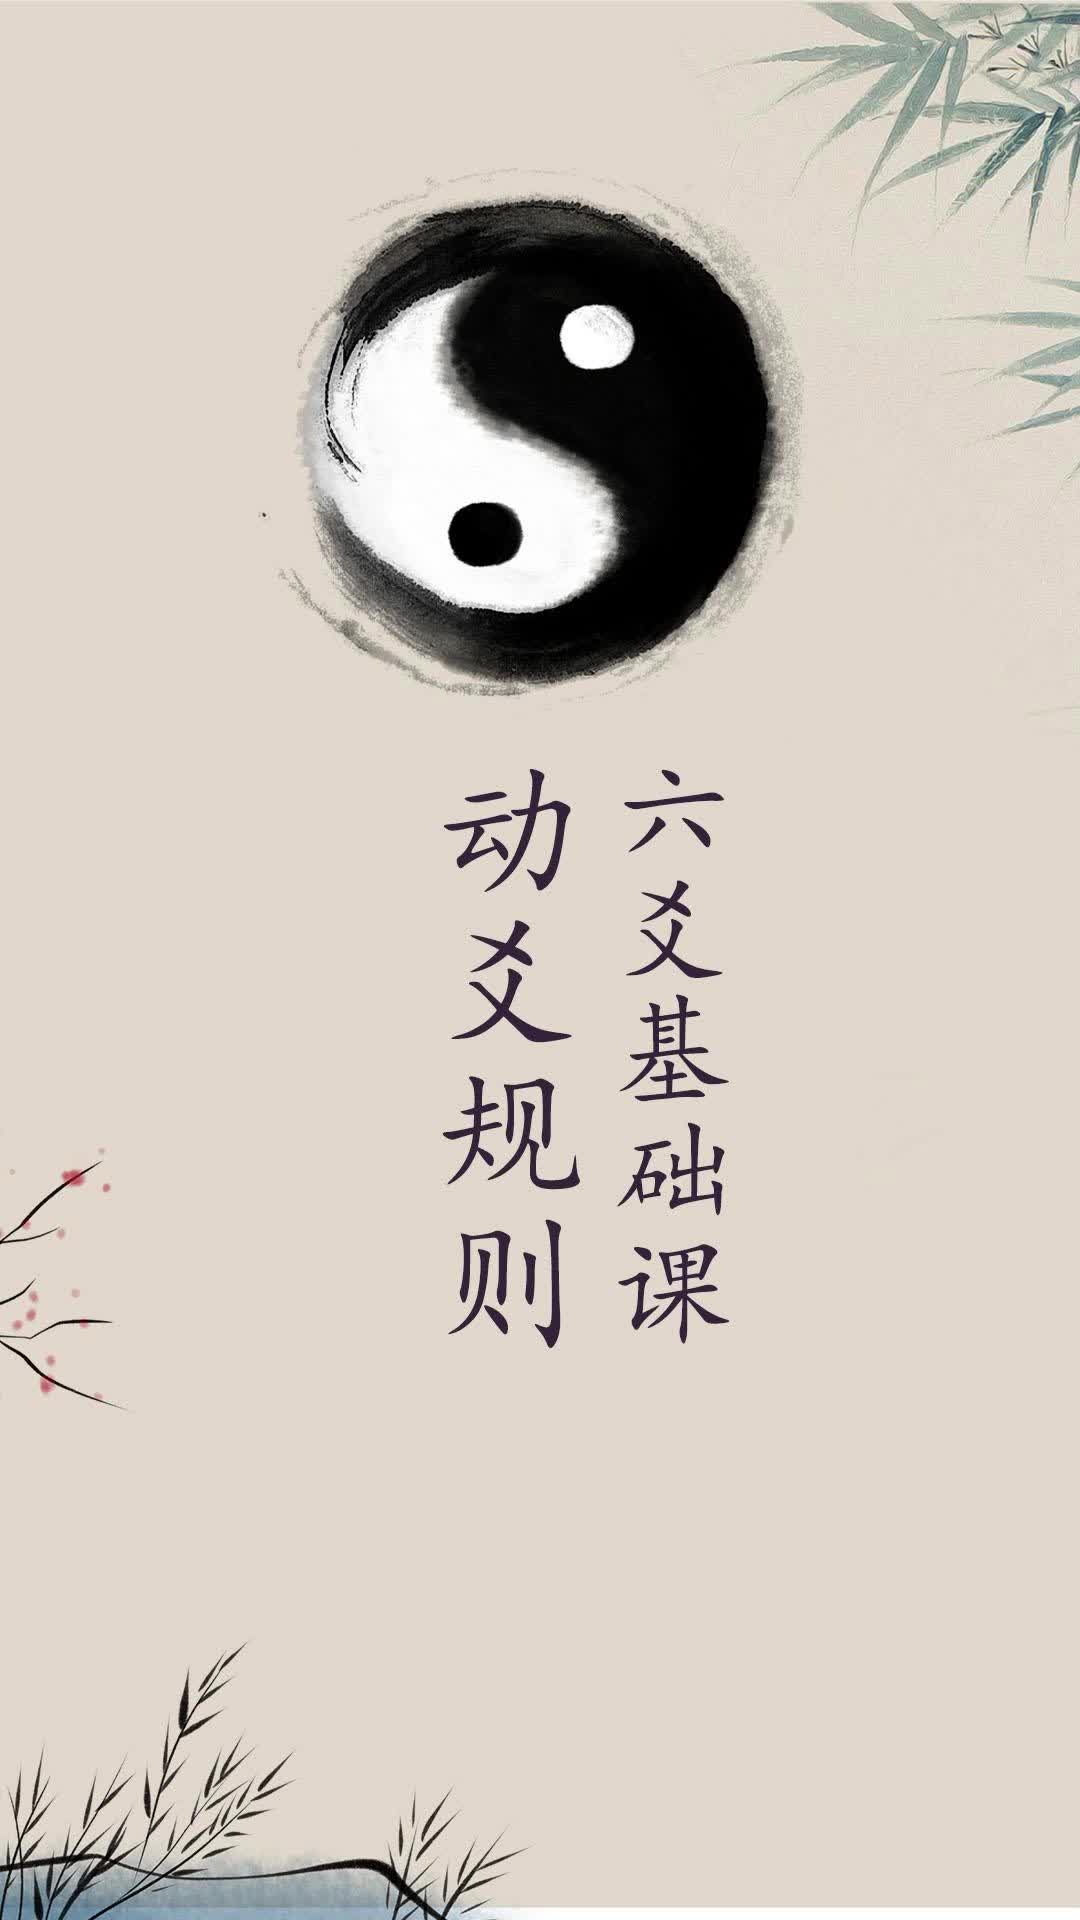 六爻基础课
动爻规则